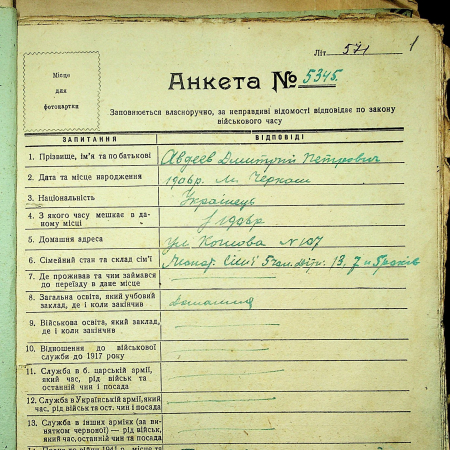 Літ 571 1
Місце
для
фотокартки
Анкета № 5345.
Заповнюється власноручно, за неправдиві відомості відповідає по закону
військового часу
ЗАПИТАННЯ ВІДПОВІДІ
1. Прізвище, ім'я та по батькові Авдеев Дмитрий Петрович
2. Дата та місце народження 1906р. м. Черкаси
3. Національність Украинець
4. З якого часу мешкає в да-
ному місці з 1906р
5. Домашня адреса ул. № 107
6. Сімейний стан та склад сім'ї 13, 7 и 5 років
7. Де проживав та чим займався
до переїзду в дане місце
8. Загальна освіта, який учбовий
заклад, де і коли закінчив домашня
9. Військова освіта, який заклад,
де і коли закінчив
10. Відношення до військової
служби до 1917 року
11. Служба в б. царській армії,
який час, рід військ та
останній чин і посада
12. Служба в Українській армії, який
час, рід військ та ост. чин і посада
13. Служба в інших арміях (за ви-
нятком червоної) — рід військ,
який час, останній чин та посада